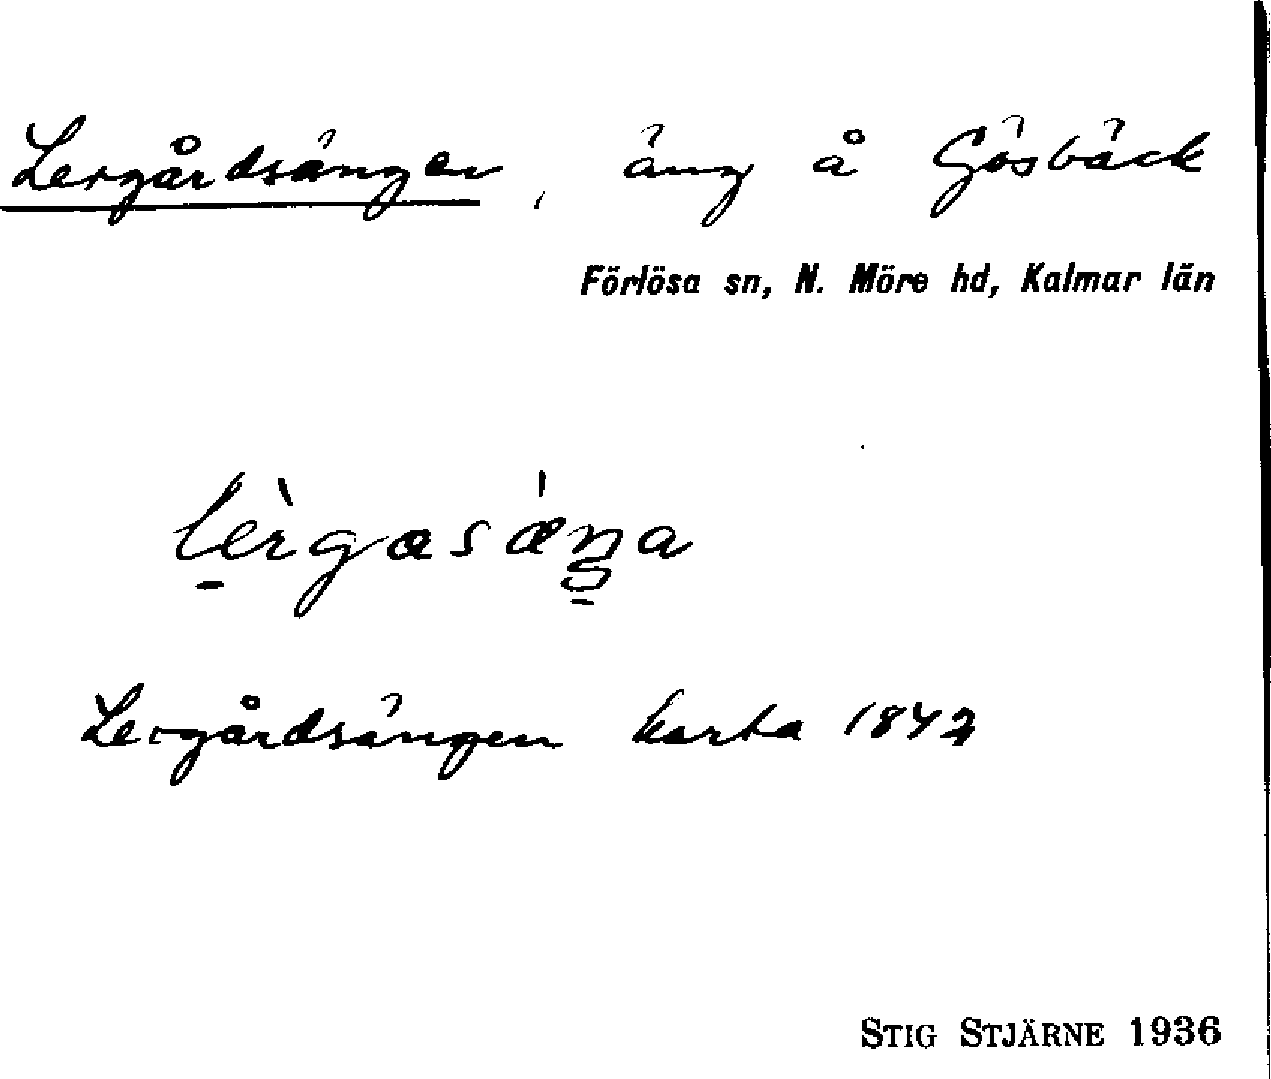 Lergårdsängen, äng å Gösbäck
Förlösa sn, N. Möre hd, Kalmar län
Lergårdsängen karta
STIG STJÄRNE 1936